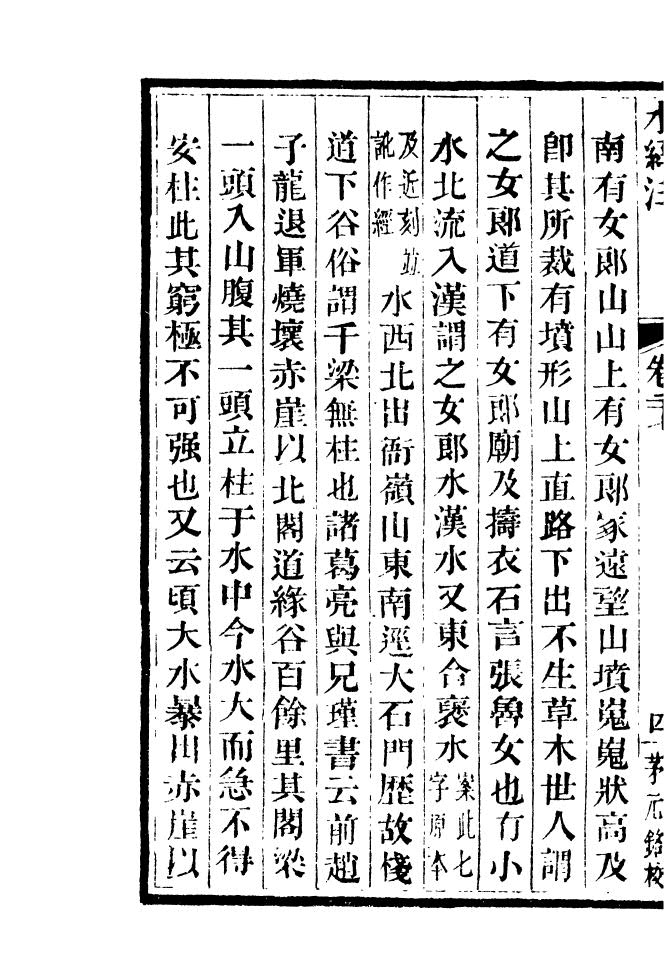 水經注 卷二十 四 茅元銘校
南有女郎山山上有女郎冢遠望山墳嵬嵬狀高及
卽其所裁有墳形山上直路下出不生草木世人謂
之女郎道下有女郎廟及擣衣石言張魯女也有小
水北流入漢謂之女郎水漢水又東合褒水案此七字原本
及近刻並訛作經水西北出衙嶺山東南逕大石門歷故棧
道下谷俗謂千梁無柱也諸葛亮與兄瑾書云前趙
子龍退軍燒壞赤崖以北閣道緣谷百餘里其閣梁
一頭入山腹其一頭立柱于水中今水大而急不得
安柱此其窮極不可强也又云頃大水暴出赤崖以